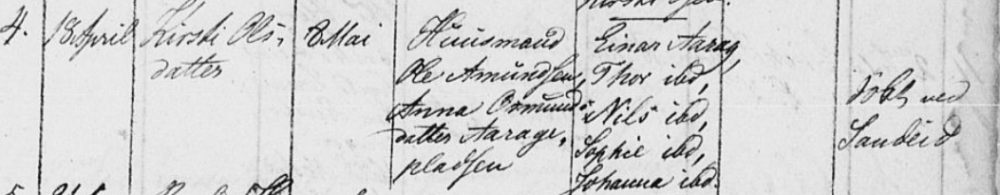 4. 18 April Kirsti Ols-
datter
8 Mai
Huusmand
Ole Amundsen,
Anna Osmunds-
datter Aarage-
pladsen
Einar Aarag,
Thor ibd,
Nils ibd,
Sophie ibd,
Johanna ibd.
Døbt ved
Sandeid